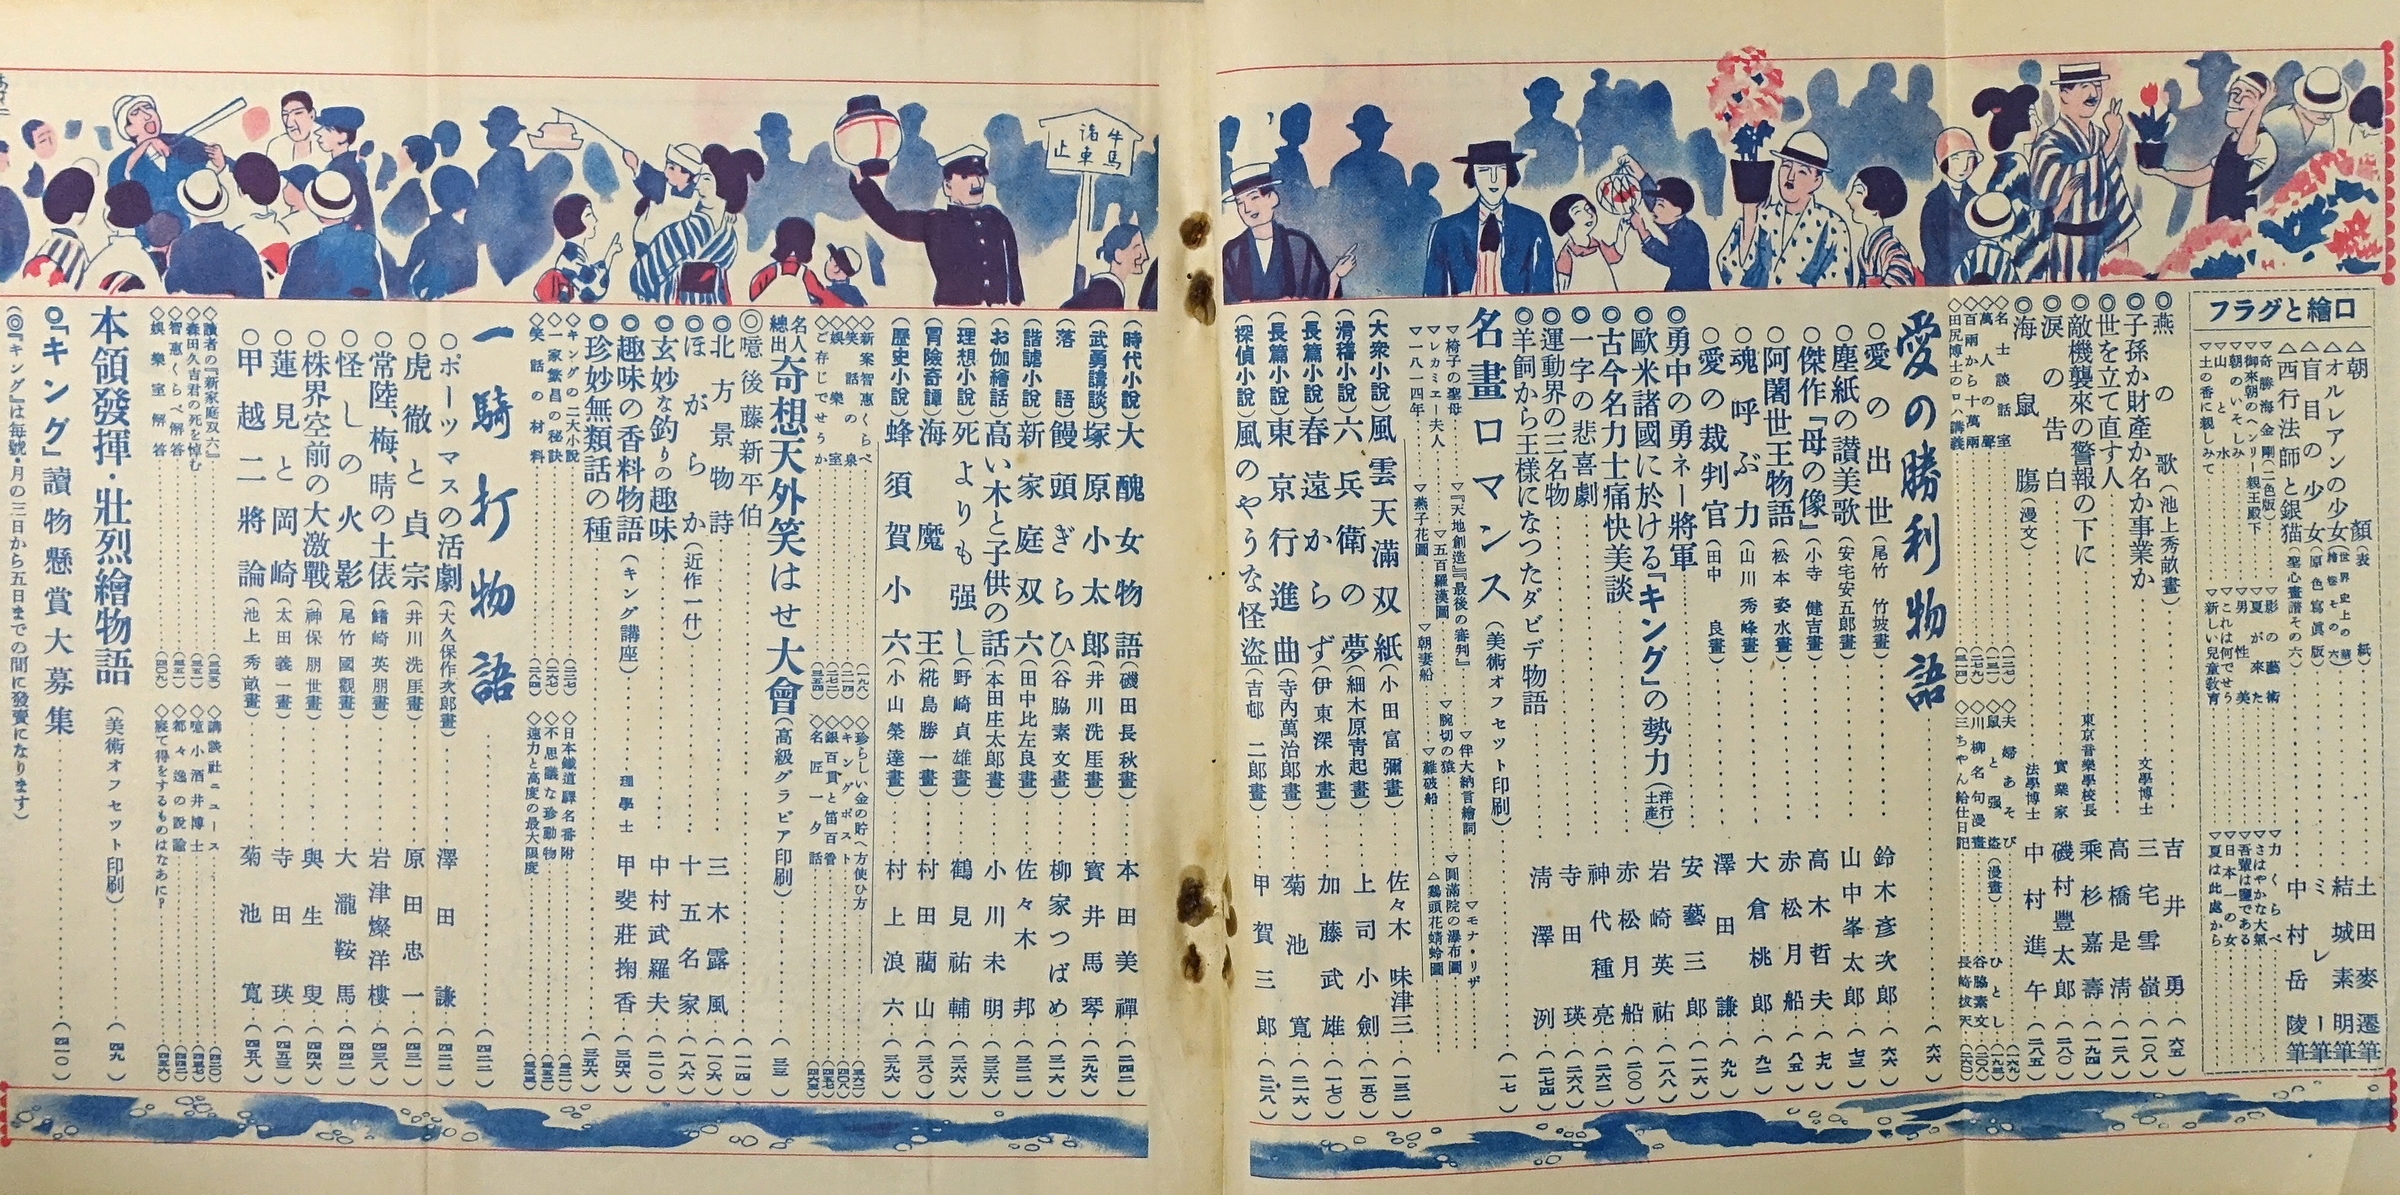 口繪とグラフ
△朝顔(表紙)……土田麥遷筆
△オルレアンの少女(世界史上の華 繪卷その六)……結城素明筆
△盲目の少女(原色寫眞版)……ミレー筆
△西行法師と銀猫(聖心畫譜その六)……中村岳陵筆
▽奇勝海金剛(二色版)
▽御來朝のヘンリー親王殿下
▽朝のいそしみ
▽山と水
▽土の香に親しみて
▽影の藝術
▽夏が來た
▽男性美
▽これは何でせう
▽新しい兒童敎育
▽力くらべ
▽さはやかな大氣
▽吾輩は鹽である
▽日本一の女
▽夏は此處から
◎燕の歌(池上秀畝畫)……吉井勇…(六五)
◎子孫か財產か名か事業か……文學博士 三宅雪嶺…(一〇八)
◎世を立て直す人……高橋是淸…(一二八)
◎敵機襲來の警報の下に……東京音樂學校長 乘杉嘉壽…(一九四)
◎淚の吿白……實業家 磯村豐太郎…(二八〇)
◎海鼠膓漫文……法學博士 中村進午…(二八五)
◇名士談話室
◇萬人の聲
◇百兩から十萬兩
◇田尻博士のロハ講義
◇夫婦あそび
◇鼠と强盜(漫畫)……ひとし
◇川柳名句漫畫……谷脇素文
◇三ちやん給仕日記……長崎拔天
愛の勝利物語……(六六)
○愛の出世(尾竹竹坡畫)……鈴木彥次郎…(六六)
○塵紙の讃美歌(安宅安五郎畫)……山中峯太郎…(七三)
○傑作『母の像』(小寺健吉畫)……高木哲夫…(七九)
○阿闍世王物語(松本姿水畫)……赤松月船…(八五)
○魂呼ぶ力(山川秀峰畫)……大倉桃郎…(九二)
○愛の裁判官(田中良畫)……澤田謙…(九九)
◎勇中の勇ネー將軍……安藝三郎…(一一六)
◎歐米諸國に於ける『キング』の勢力(洋行土產)……岩崎英祐…(一八八)
◎古今名力士痛快美談……赤松月船…(二〇〇)
◎一字の悲喜劇……神代種亮…(二六二)
◎運動界の三名物……寺田瑛…(二六八)
◎羊飼から王樣になつたダビデ物語……淸澤洌…(二七四)
名畫ロマンス(美術オフセット印刷)……(一七)
▽椅子の聖母……▽『天地創造』『最後の審判』……▽伴大納言繪詞……▽モナ・リザ
▽レカミエー夫人……▽五百羅漢圖……▽腕切の猿……▽圓滿院の瀑布圖
▽一八一四年……▽燕子花圖……▽朝妻船……▽難破船……△鷄頭花蜻蛉圖
(大衆小說)風雲天滿双紙(小田富彌畫)……佐々木味津三…(一三二)
(滑稽小說)六兵衛の夢(細木原靑起畫)……上司小劍…(一五〇)
(長篇小說)春遠からず(伊東深水畫)……加藤武雄…(一七〇)
(長篇小說)東京行進曲(寺內萬治郎畫)……菊池寬…(二一六)
(探偵小說)風のやうな怪盜(吉邨二郎畫)……甲賀三郎…(二二八)
(時代小說)大醜女物語(磯田長秋畫)……本田美禪…(二四二)
(武勇講談)塚原小太郎(井川洗厓畫)……寳井馬琴…(二九六)
(落語)饅頭ぎらひ(谷脇素文畫)……柳家つばめ…(三一六)
(諧謔小說)新家庭双六(田中比左良畫)……佐々木邦…(三二二)
(お伽繪話)高い木と子供の話(本田庄太郎畫)……小川未明…(三三六)
(理想小說)死よりも强し(野崎貞雄畫)……鶴見祐輔…(三六六)
(冒險奇譚)海魔王(椛島勝一畫)……村田藺山…(三八〇)
(歷史小說)蜂須賀小六(小山榮達畫)……村上浪六…(三九六)
◇新案智惠くらべ
◇笑話の泉
◇娛樂室
◇ご存じでせうか
◇珍らしい金の貯へ方使ひ方
◇キングポスト
◇銀百貫と笛百管
◇名匠一夕話
名人總出奇想天外笑はせ大會(高級グラビア印刷)……
◎噫後藤新平伯……(一一四)
◎北方景物詩……三木露風…(一〇六)
◎ほがらか(近作一什)……十五名家…(一八六)
◎玄妙な釣りの趣味……中村武羅夫…(二一〇)
◎趣味の香料物語(キング講座)……理學士 甲斐莊掬香…(三四六)
◎珍妙無類話の種……(三五六)
◇キングの二大小說
◇一家繁昌の秘訣
◇笑話の材料
◇日本鐵道驛名番附
◇不思議な珍動物
◇速力と高度の最大限度
一騎打物語……(四二二)
○ポーツマスの活劇(大久保作次郎畫)……澤田謙…(四二二)
○虎徹と貞宗(井川洗厓畫)……原田忠一…(四三一)
○常陸、梅、晴の土俵(鰭崎英朋畫)……岩津燦洋樓…(四三八)
○怪しの火影(尾竹國觀畫)……大瀧鞍馬…(四四二)
○株界空前の大激戰(神保朋世畫)……與生叟…(四四六)
○蓮見と岡崎(太田義一畫)……寺田瑛…(四五三)
○甲越二將論(池上秀畝畫)……菊池寬…(四五八)
◇讀者の『新家庭双六』
◇森田久吉君の死を悼む
◇智惠くらべ解答
◇娛樂室解答
◇講談社ニュース
◇噫小酒井博士
◇都々逸の說諭
◇寢て得をするものはなあに?
本領發揮・壯烈繪物語(美術オフセット印刷)……(四九)
◎『キング』讀物懸賞大募集……(四一〇)
(◎『キング』は每號・月の三日から五日までの間に發賣になります)
牛馬
諸車
止